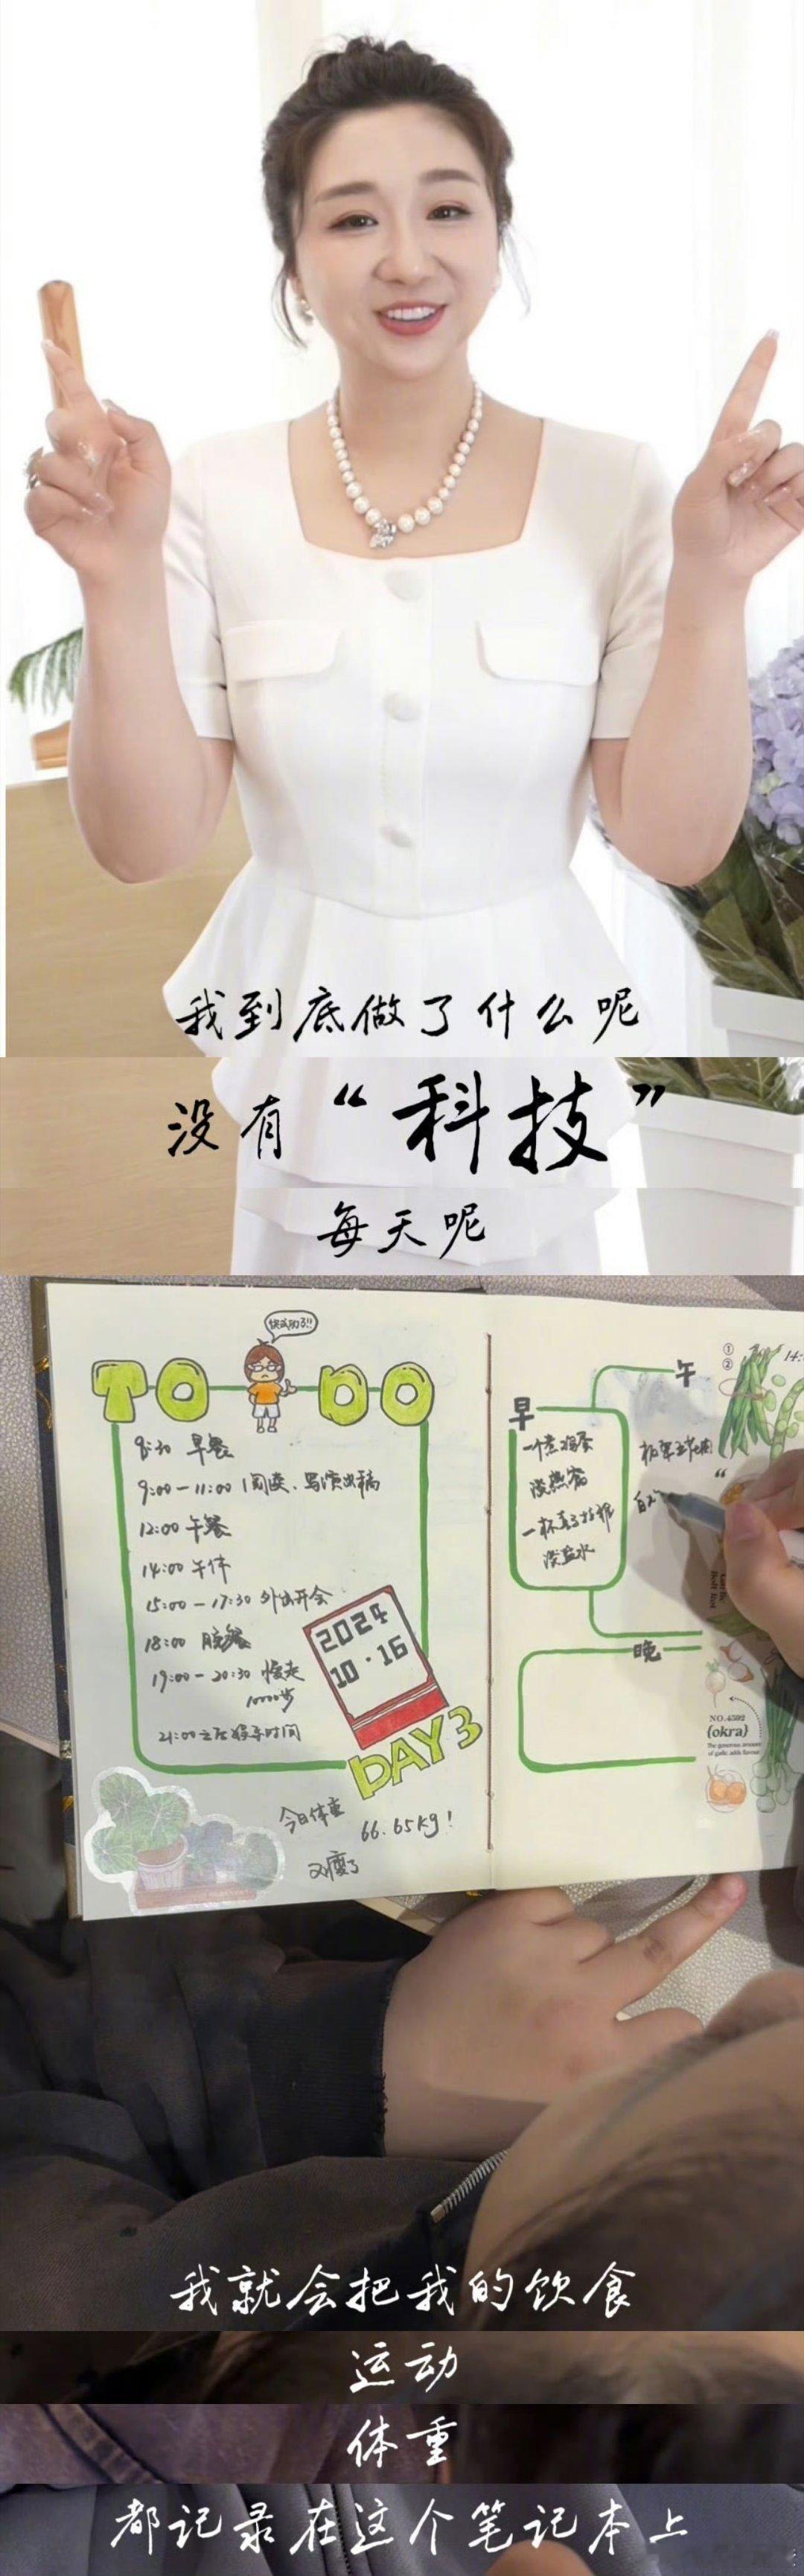 我到底做了什么呢
没有“科技”
每天呢
快成功了!!
TO-DO
8:30 早餐
9:00-11:00 阅读、写演出稿
12:00 午餐
14:00 午休
15:00-17:30 外出开会
18:00 晚餐
19:00-20:30 慢走
10000步
21:00之后 娱乐时间
2024
10·16
DAY3
今日体重
66.65kg!
又瘦了
早
一个煮鸡蛋
淡盐水
午
①
②
14:
晚
NO.4592
{okra}
我就会把我的饮食
运动
体重
都记录在这个笔记本上